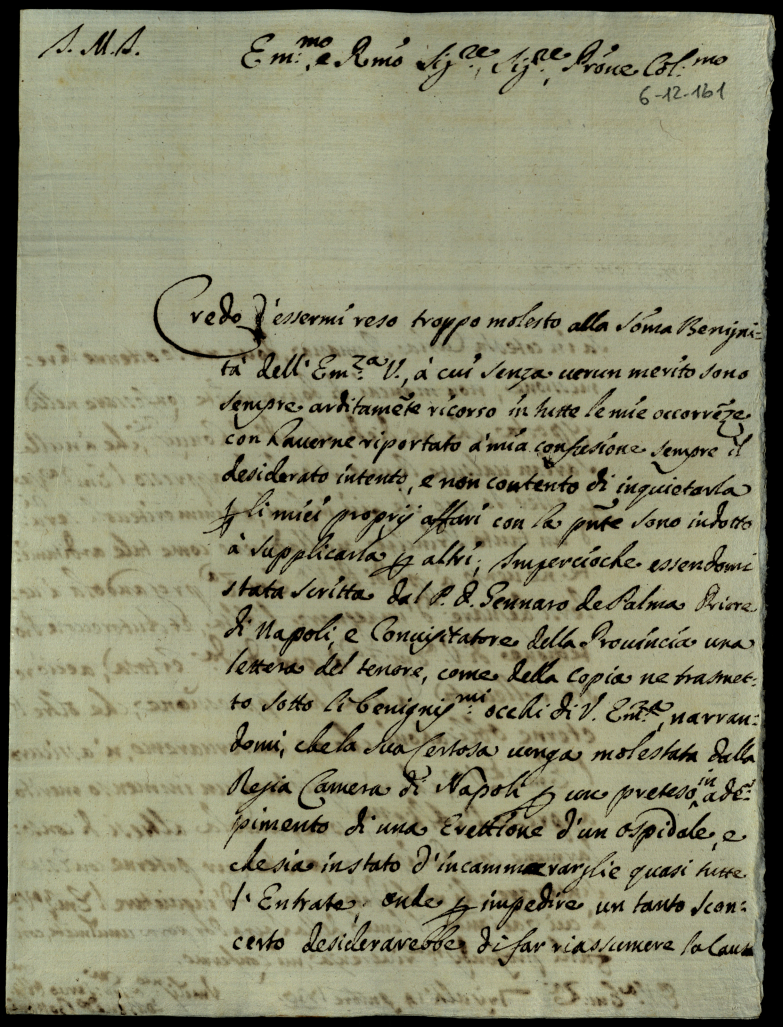 S. M. S.
Em.mo e Rmo Sig.re, Sig.re Prone Col.mo
6-12-161
Credo d'essermi reso troppo molesto alla Sõma Benigni-
tà dell' Em.za V., à cui senza uerun merito sono
sempre arditamẽte ricorso in tutte le mie occorrẽze
con hauerne riportato à mia confusione sempre il
desiderato intento, e non contento di inquietarla
p li miei proprij affari con la pñte sono indotto
à supplicarla p altri; Impercioche essendomi
stata scritta dal P. D. Gennaro de Palma Priore
di Napoli, e Conuisitatore della Prouincia una
lettera del tenore, come della copia ne trasmet-
to sotto li benignis.mi occhi di V. Em.za, narran-
domi, che la sua Certosa uenga molestata dalla
Regia Camera di Napoli p un preteso inadē-
pimento di una Erettione d'un ospidale, e
che sia instato d'incammerarglie quasi tutte
l'Entrate; onde p impedire un tanto scon-
certo desiderarebbe di far riassumere la Caus